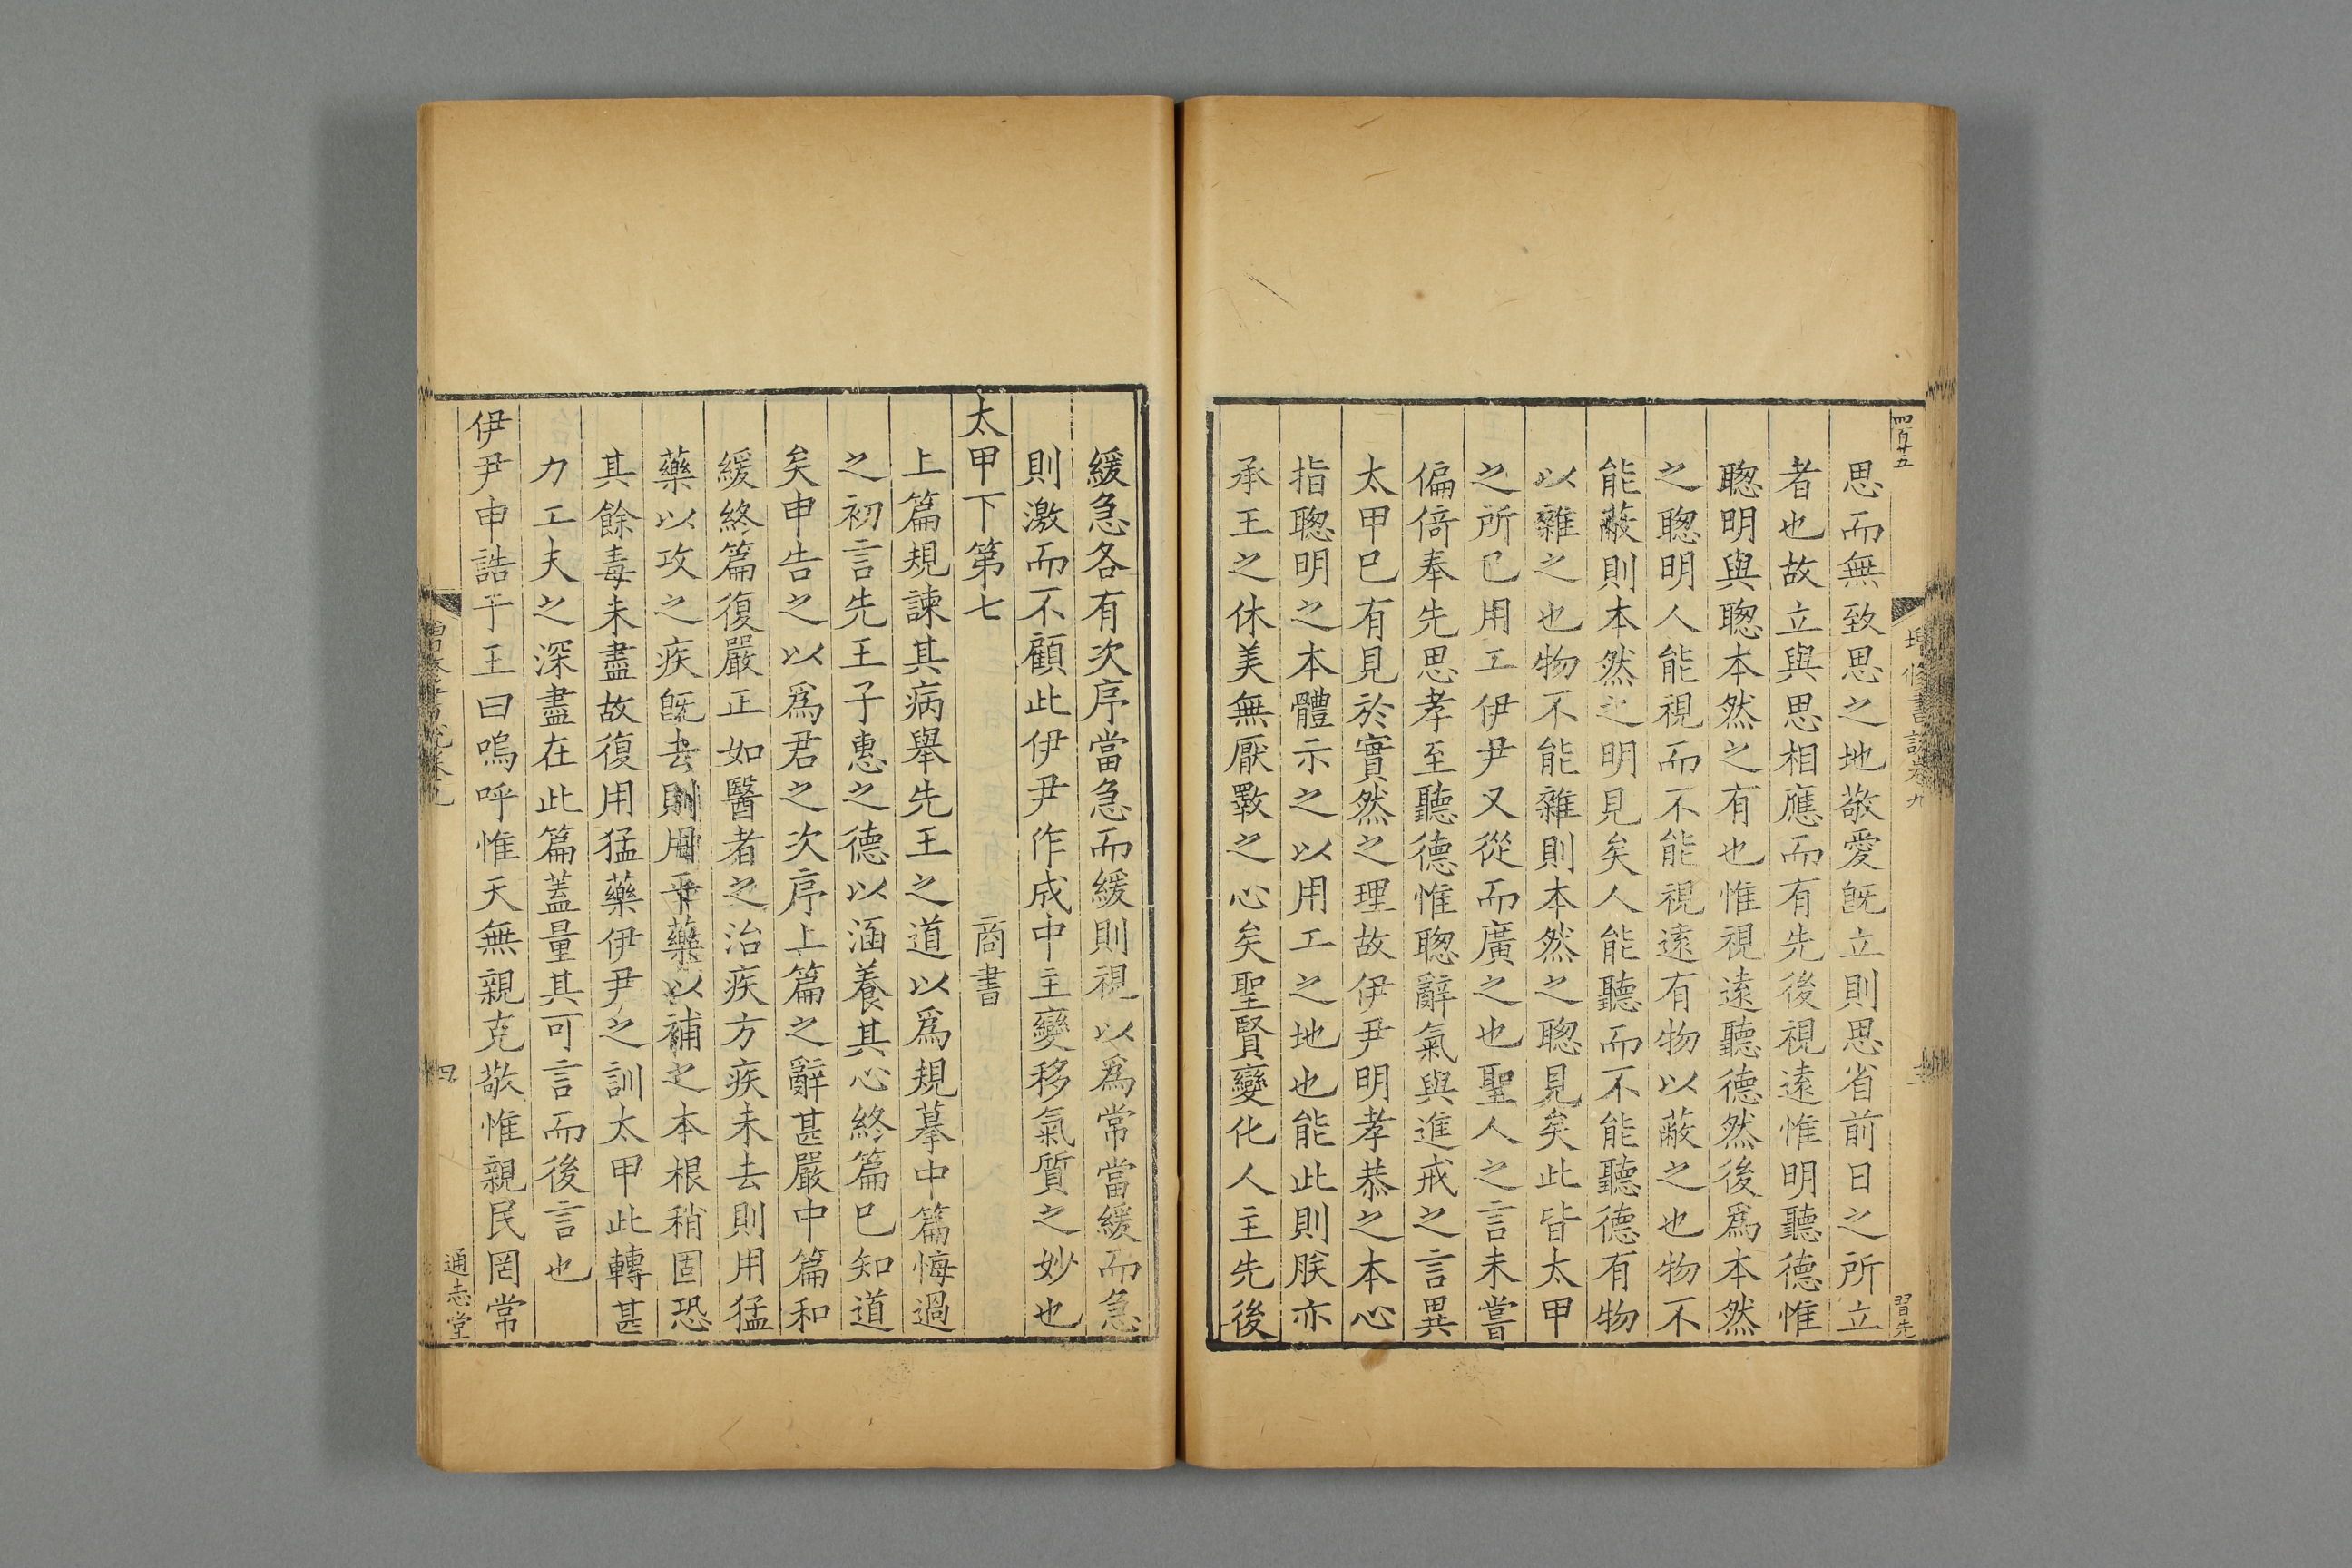 四百十五
增修書說卷九
習先
思而無致思之地敬愛旣立則思省前日之所立
者也故立與思相應而有先後視遠惟明聽德惟
聰明與聰本然之有也惟視遠聽德然後爲本然
之聰明人能視而不能視遠有物以蔽之也物不
能蔽則本然之明見矣人能聽而不能聽德有物
以雜之也物不能雜則本然之聰見矣此皆太甲
之所已用工伊尹又從而廣之也聖人之言未嘗
偏倚奉先思孝至聽德惟聰辭氣與進戒之言異
太甲已有見於實然之理故伊尹明孝恭之本心
指聰明之本體示之以用工之地也能此則朕亦
承王之休美無厭斁之心矣聖賢變化人主先後
緩急各有次序當急而緩則視以爲常當緩而急
則激而不顧此伊尹作成中主變移氣質之妙也
太甲下第七 商書
上篇規諫其病舉先王之道以爲規摹中篇悔過
之初言先王子惠之德以涵養其心終篇已知道
矣申告之以爲君之次序上篇之辭甚嚴中篇和
緩終篇復嚴正如醫者之治疾方疾未去則用猛
藥以攻之疾旣去則用平藥以補之本根稍固恐
其餘毒未盡故復用猛藥伊尹之訓太甲此轉甚
力工夫之深盡在此篇蓋量其可言而後言也
伊尹申誥于王曰嗚呼惟天無親克敬惟親民罔常
四
通志堂